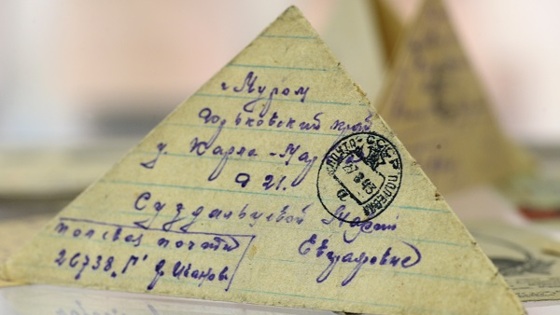 г Муром
Горьковский край
у Карла-Мар
д 21.
Суздальцевой Марии
Евграфовне
полевая почта
26738 "Г" д. Иванов
ПОЧТА СССР ПОЛЕВАЯ
а